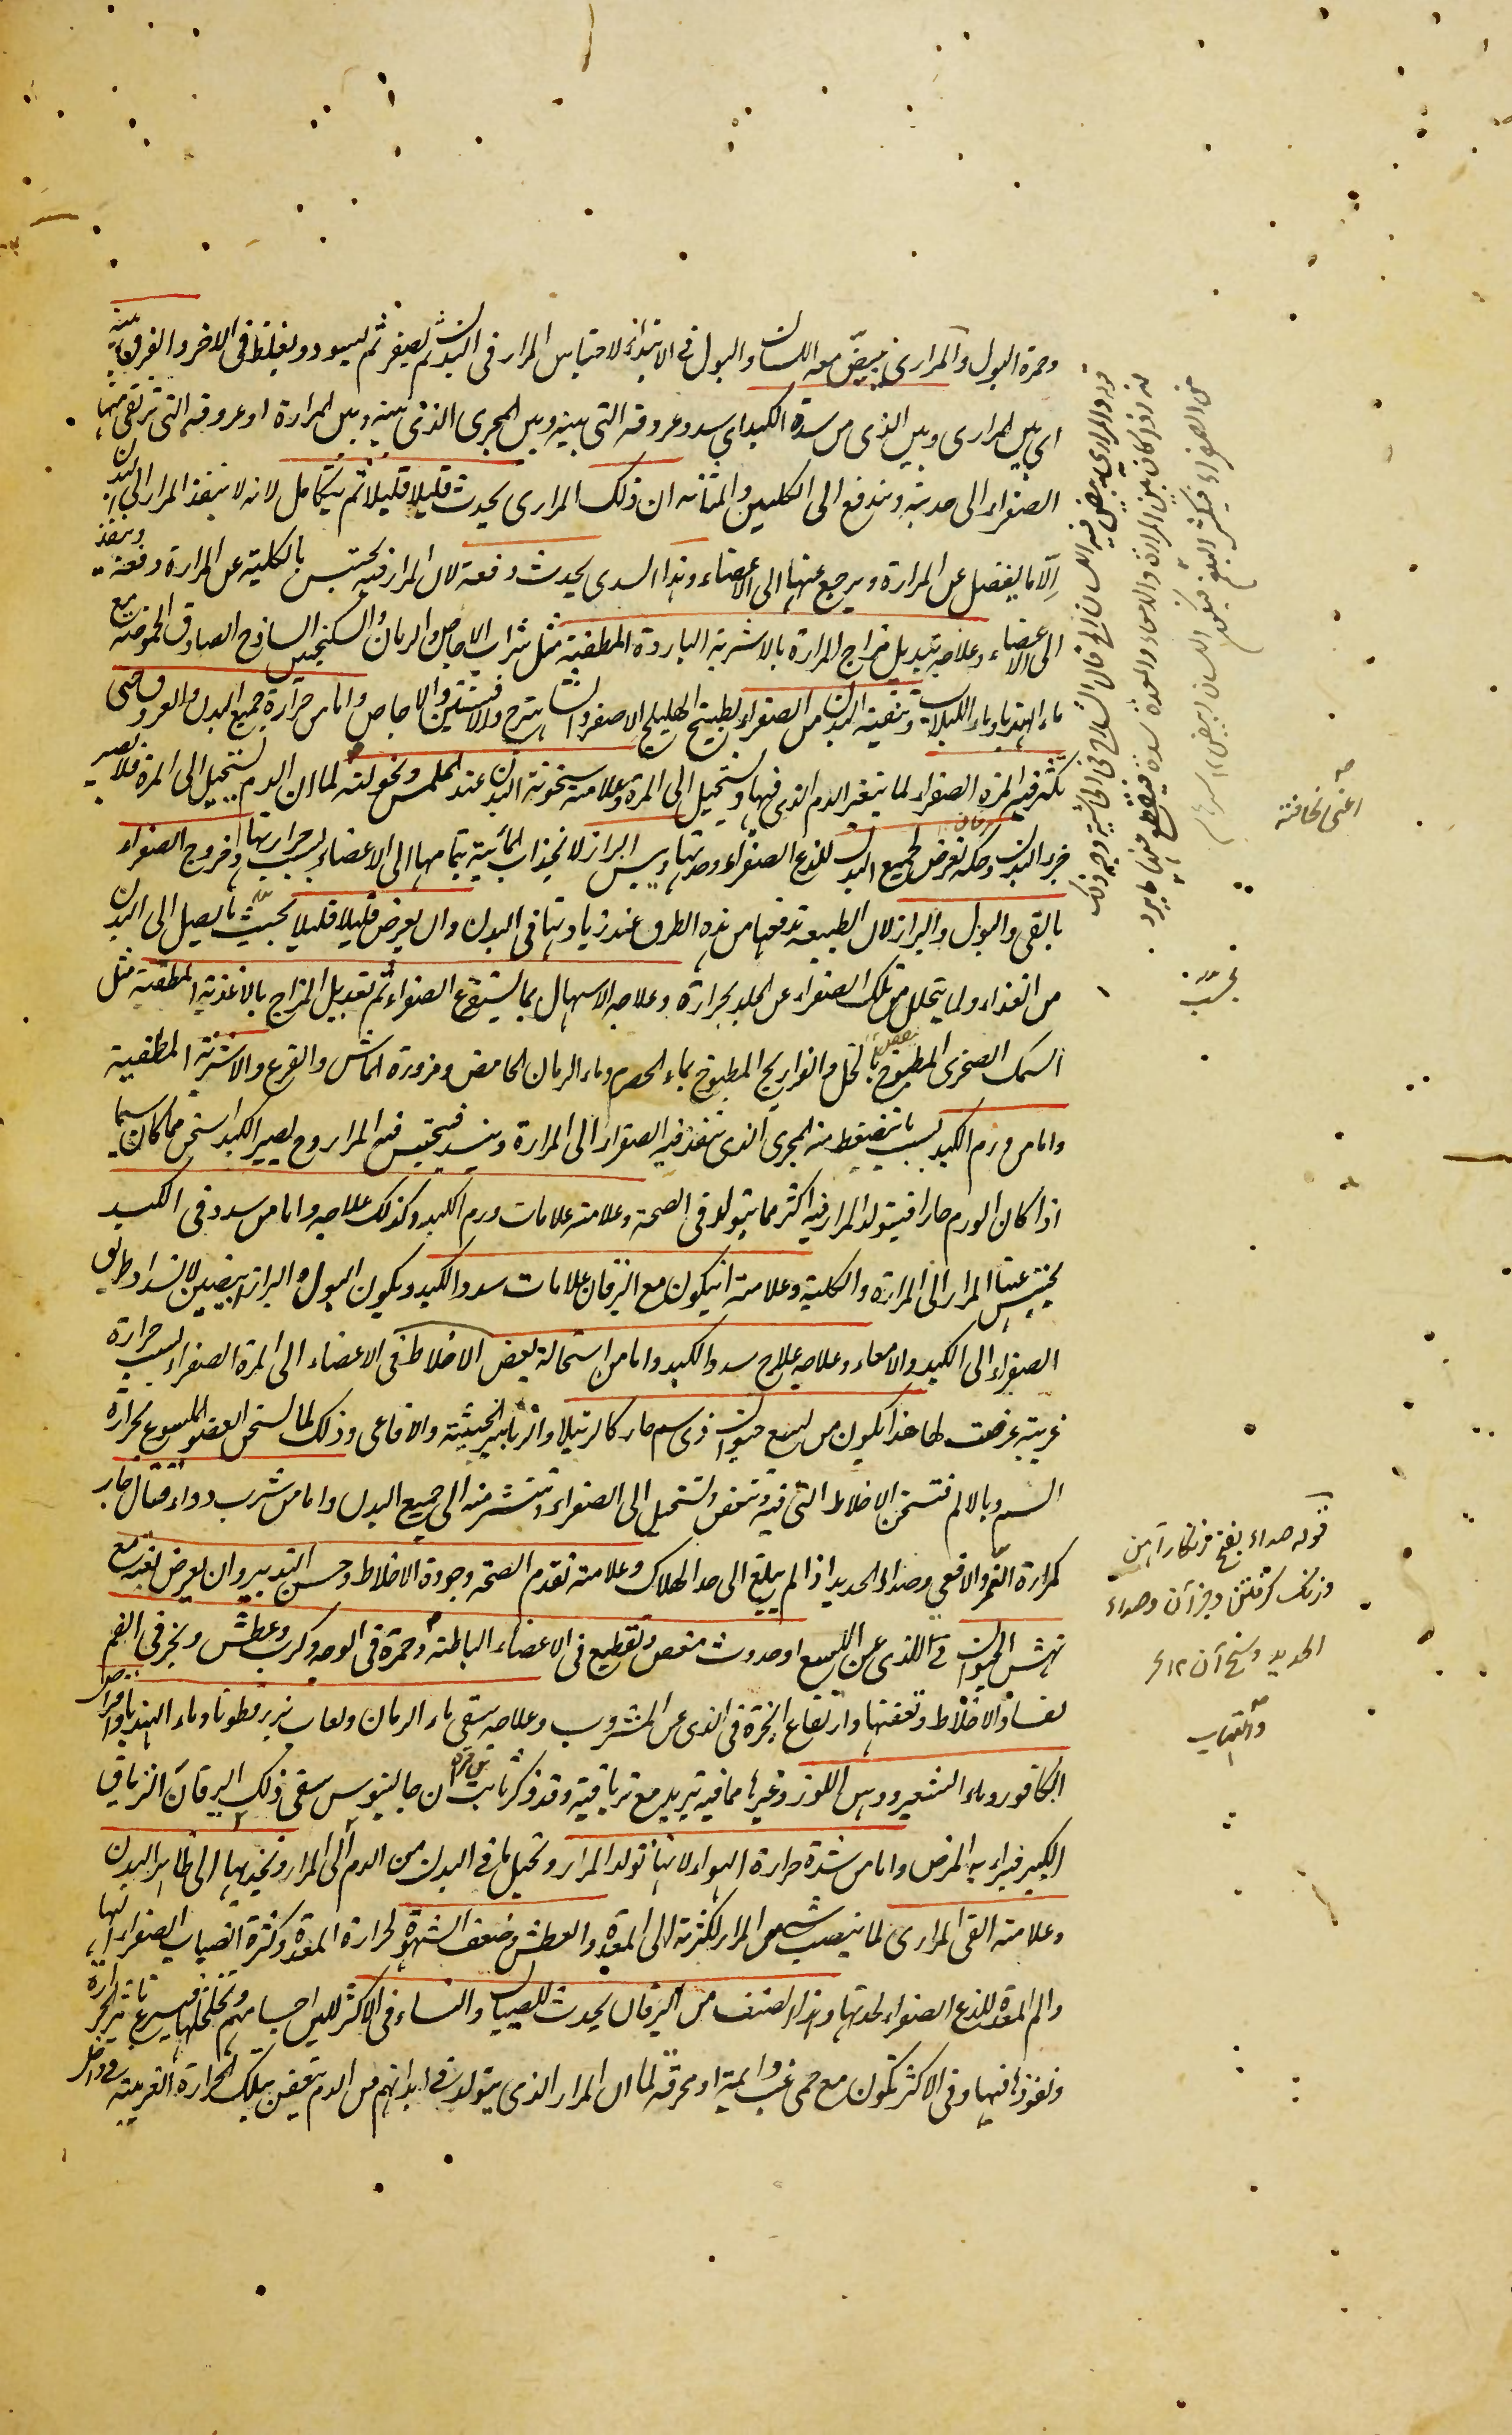 وحمرة البول والمرارى يبيض معه اللسان والبول فى الابتداء لاحتباس المرار فى البدن ثم يصفر ثم يسود ويغلظ فى الاخر والفرق بينه
اي بين المرارى وبين الذى من سدة الكبد اى سدد عروقه التى بينه وبين المجرى الذى بينه وبين المرارة او عروقه التى ترتقى منها
الصفراء الى حدبته وتندفع الى الكليين والمثانه ان ذلك المرارى يحدث قليلا قليلا ثم يتكامل لانه لا ينفذ المرار الى البدن
الا ما يفضل عن المرارة ويرجع عنها الى الاعضاء وهذا السدى يحدث دفعة لان المرار فيه يحتبس بالكلية عن المرارة دفعة وينفذ
الى الاعضاء وعلاجه تبديل مزاج المرارة بالاشربة الباردة المطفية مثل شراب الاجاص والرمان والسكنجبين الساذج الصادق الحموضة مع
ماء الهندبا وماء اللبلاب وتنقية البدن من الصفراء بطبيخ الهليلج الاصفر والشاهترج والافسنتين والاجاص واما من حرارة جميع البدن والعروق حتى
تكثر فيه المرة الصفراء لما يتغير الدم الذى فيها ويستحيل الى المرة وعلامته سخونة البدن عند الملمس ونحولته لما ان الدم يستحيل الى المرة فلا يصير
جزء البدن وحكة تعرض لجميع البدن للذع الصفراء وحدتها ويبس البراز لانجذاب المائية بتمامها الى الاعضاء بسبب حرارتها وخروج الصفراء
بالقى والبول والبراز لان الطبيعة تدفعها من هذه الطرق عند زيادتها فى البدن وان يعرض قليلا قليلا بحيث ما يصل الى البدن
من الغذاء ولما يتحلل من تلك الصفراء عن الجلد بحرارة وعلاجه الاسهال بما يستفرغ الصفراء ثم تعديل المزاج بالاغذية المطفية مثل
السمك الصخرى المطبوخ بالخل والفراريج المطبوخ بماء الحصرم وماء الرمان الحامض ومزورة الماش والقرع والاشربة المطفية
واما من ورم الكبد بسبب ما ينضغط منه المجرى الذى تنفذ فيه الصفراء الى المرارة وينسد فيحتبس فيه المرار وح يصير الكبد اسخن مما كان سيما
اذا كان الورم حارا فيتولد المرار فيه اكثر مما يتولد فى الصحة وعلامته علامات ورم الكبد وكذلك علاجه واما من سدد فى الكبد
يحتبس عنها المرار الى المرارة والكلية وعلامته ان يكون مع اليرقان علامات سدد الكبد ويكون البول والبراز ابيضين لانسداد طريق
الصفراء الى الكبد والامعاء وعلاجه علاج سدد الكبد واما من استحالة بعض الاخلاط فى الاعضاء الى المرة الصفراء بسبب حرارة
غريبة عرضت لها هذا يكون من لسع حيوان ذى سم حار كالرتيلا والزنابير الخبيثة والافاعى وذلك لما يسخن العضو الملسوع بحرارة
السم وبالالم فتسخن الاخلاط التى فيه وتعفن وتستحيل الى الصفراء وتنتشر منه الى جميع البدن واما من شرب دواء قتال حار
كمرارة النمر والافعى وصداء الحديد اذا لم يبلغ الى حد الهلاك وعلامته تقدم الصحة وجودة الاخلاط وحسن التدبير وان يعرض بغتة مع
نهش الحيوان فى الذى عن اللسع او حدوث مغص وتقطيع فى الاعضاء الباطنة وحمرة فى الوجه وكرب وعطش وبخر فى الفم
لفساد الاخلاط وتعفنها وارتفاع ابخرة فى الذى عن المشروب وعلاجه سقى ماء الرمان ولعاب بزرقطونا وماء الهندبا واقراص
الكافور وماء الشعير ودهن اللوز وغيرها مما فيه تبريد مع ترياقية وقد ذكر ثابت بن قرة ان جالينوس سقى ذلك اليرقان الترياق
الكبير فبراء به المرض واما من شدة حرارة الهواء لانها تولد المرار وتحيل ما فى البدن من الدم الى المرار وتجذبها الى ظاهر البدن
وعلامته القى المرارى لما ينصب شى من المرار لكثرته الى المعدة والعطش وضعف الشهوة لحرارة المعدة وكثرة انصباب الصفراء اليها
والم المعدة للذع الصفراء لحدتها وهذا الصنف من اليرقان يحدث للصبيان والنساء فى الاكثر للين اجسامهم وتخلخلها فيسرع تاثير الحرارة
ونفوذها فيها وفى الاكثر تكون مع حمى غب دائمة او محرقة لما ان المرار الذى يتولد فى ابدانهم من الدم يتعفن بتلك الحرارة الغريبة فى داخل
قوله والمرارى يبيض فيه اللسان الخ قال الشارح فى الحاشية وجه ذلك
من الصفراء فيكثر البلغم فيكون اللسان ابيض
اعنى نحافته
قوله صداء بفتح زنكار آهن
وزنك گرفتن وجز آن وصداء
الحديد وسخ آن ١٢
والتهاب